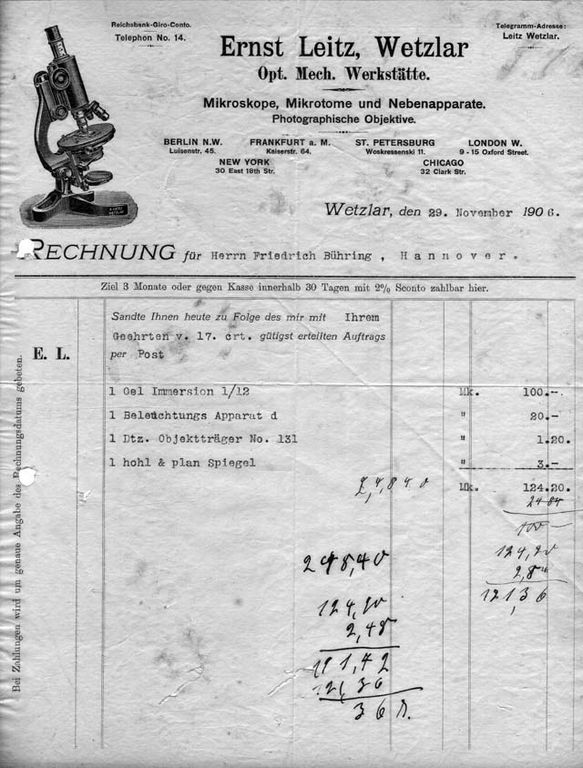 Reichsbank-Giro-Conto.
Telephon No. 14.
Telegramm-Adresse:
Leitz Wetzlar.
Ernst Leitz, Wetzlar
Opt. Mech. Werkstätte.
Mikroskope, Mikrotome und Nebenapparate.
Photographische Objektive.
BERLIN N.W. FRANKFURT a. M. ST. PETERSBURG LONDON W.
Luisenstr. 45. Kaiserstr. 64. Woskressenski 11. 9-15 Oxford Street.
NEW YORK CHICAGO
30 East 18th Str. 32 Clark Str.
Wetzlar, den 29. November 1906.
RECHNUNG für Herrn Friedrich Bühring , Hannover.
Ziel 3 Monate oder gegen Kasse innerhalb 30 Tagen mit 2% Sconto zahlbar hier.
Sandte Ihnen heute zu Folge des mir mit Ihrem
Geehrten v. 17. crt. gütigst erteilten Auftrags
E. L. per Post
1 Gel Immersion 1/12 Mk. 100.-
1 Beleuchtungs Apparat d " 20.-
1 Dtz. Objektträger No. 131 " 1.20.
1 hohl & plan Spiegel " 3.-
Mk. 124.20.
2484
100
248,40
124,20
124,20
2,48
121,72
Bei Zahlungen wird um genaue Angabe des Rechnungsdatums gebeten.